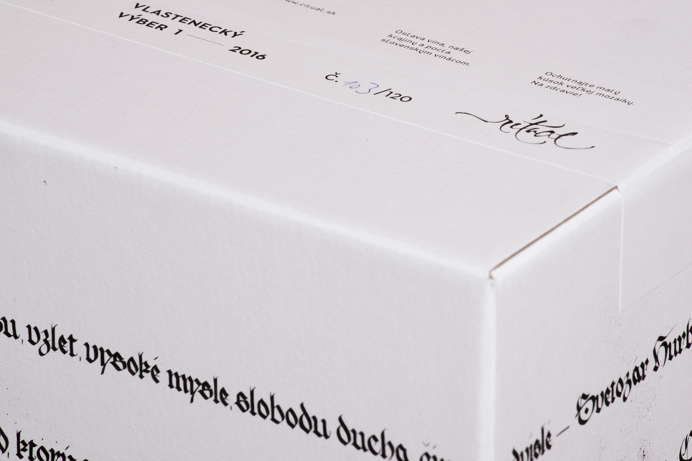 www.ritual.sk
VLASTENECKÝ
VÝBER 1 — 2016
Oslava vína, našej
krajiny a pocta
slovenským vinárom.
Ochutnajte malý
kúsok veľkej mozaiky.
Na zdravie!
Č. 103/120
ritual
vzlet vysoké mysle slobodu ducha
— Svetozár